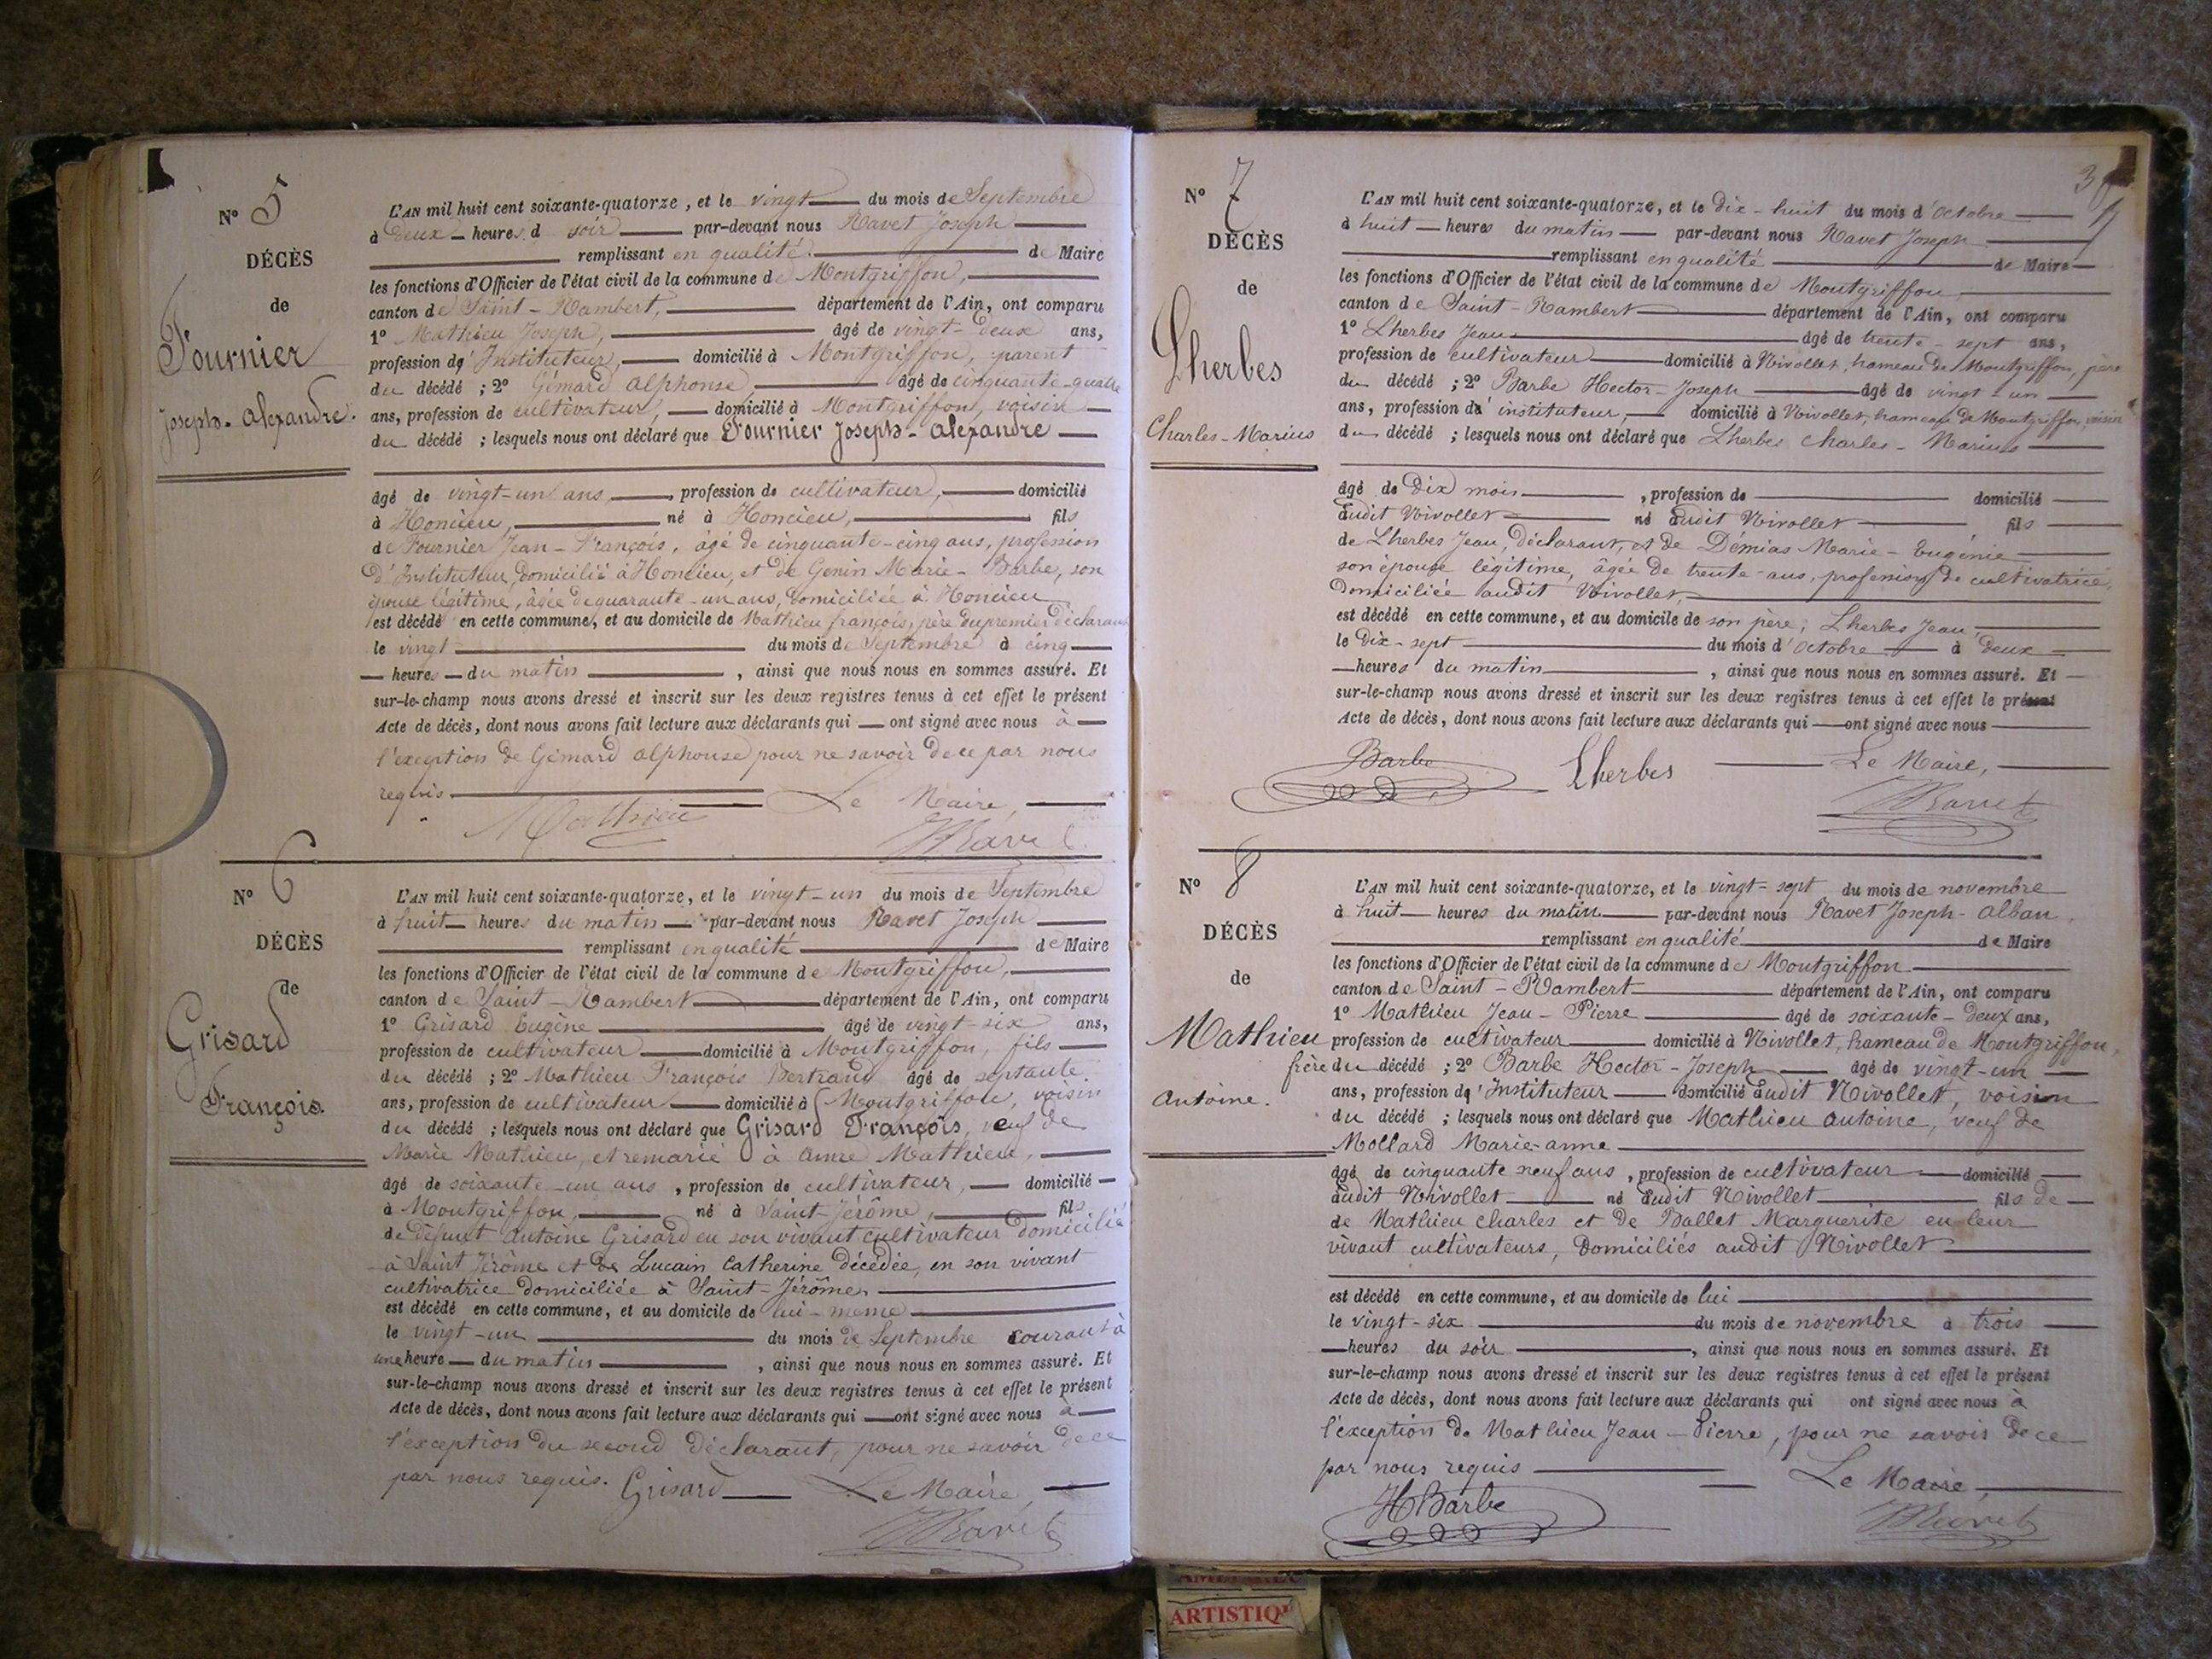 N° 5
DÉCÈS
de
Fournier
Joseph-Alexandre.
L'AN mil huit cent soixante-quatorze, et le vingt du mois de Septembre
à deux heures d soir par-devant nous Ravet Joseph
remplissant en qualité de Maire
les fonctions d'Officier de l'état civil de la commune de Montgriffon,
canton de Saint-Rambert, département de l'Ain, ont comparu
1° Mathieu Joseph, âgé de vingt-deux ans,
profession d'Instituteur, domicilié à Montgriffon, parent
du décédé ; 2° Gémard Alphonse âgé de cinquante-quatre
ans, profession de cultivateur, domicilié à Montgriffon, voisin
du décédé ; lesquels nous ont déclaré que Fournier Joseph-Alexandre
âgé de vingt-un ans, profession de cultivateur, domicilié
à Honcieu, né à Honcieu, fils
de Fournier Jean-François, âgé de cinquante-cinq ans, profession
d'Instituteur, domicilié à Honcieu, et de Genin Marie-Barbe, son
épouse légitime, âgée de quarante-un ans, domiciliée à Honcieu
est décédé en cette commune, et au domicile de Mathieu françois, père du premier déclarant
le vingt du mois de Septembre à cinq
heures du matin, ainsi que nous nous en sommes assuré. Et
sur-le-champ nous avons dressé et inscrit sur les deux registres tenus à cet effet le présent
Acte de décès, dont nous avons fait lecture aux déclarants qui ont signé avec nous à
l'exception de Gémard Alphonse pour ne savoir de ce par nous
requis.
Mathieu Le Maire,
Ravet
N° 6
DÉCÈS
de
Grisard
François.
L'AN mil huit cent soixante-quatorze, et le vingt-un du mois de Septembre
à huit heures du matin par-devant nous Ravet Joseph
remplissant en qualité de Maire
les fonctions d'Officier de l'état civil de la commune de Montgriffon,
canton de Saint-Rambert département de l'Ain, ont comparu
1° Grisard Eugène âgé de vingt-six ans,
profession de cultivateur domicilié à Montgriffon, fils
du décédé ; 2° Mathieu François Bertrand âgé de septante
ans, profession de cultivateur domicilié à Montgriffon, voisin
du décédé ; lesquels nous ont déclaré que Grisard François, veuf de
Marie Mathieu, et remarié à Anne Mathieu,
âgé de soixante-un ans, profession de cultivateur, domicilié
à Montgriffon, né à Saint-Jérôme, fils
de défunt Antoine Grisard en son vivant cultivateur domicilié
à Saint Jérôme et de Lucain Catherine décédée, en son vivant
cultivatrice domiciliée à Saint-Jérôme
est décédé en cette commune, et au domicile de lui-même
le vingt-un du mois de Septembre courant à
une heure du matin, ainsi que nous nous en sommes assuré. Et
sur-le-champ nous avons dressé et inscrit sur les deux registres tenus à cet effet le présent
Acte de décès, dont nous avons fait lecture aux déclarants qui ont signé avec nous à
l'exception du second déclarant, pour ne savoir de ce
par nous requis. Grisard Le Maire,
Ravet
N° 7
DÉCÈS
de
Lherbes
Charles-Marius
L'AN mil huit cent soixante-quatorze, et le dix-huit du mois d'octobre
à huit heures du matin par-devant nous Ravet Joseph
remplissant en qualité de Maire
les fonctions d'Officier de l'état civil de la commune de Montgriffon
canton de Saint-Rambert département de l'Ain, ont comparu
1° Lherbes Jean âgé de trente-sept ans,
profession de cultivateur domicilié à Nivollet, hameau de Montgriffon, père
du décédé ; 2° Barbe Hector-Joseph âgé de vingt-un
ans, profession d'instituteur, domicilié à Nivollet, hameau de Montgriffon, voisin
du décédé ; lesquels nous ont déclaré que Lherbes Charles-Marius
âgé de dix mois, profession de domicilié
audit Nivollet né audit Nivollet fils
de Lherbes Jean, déclarant, et de Démias Marie-Eugénie
son épouse légitime, âgée de trente-ans, profession de cultivatrice,
domiciliée audit Nivollet,
est décédé en cette commune, et au domicile de son père, Lherbes Jean
le dix-sept du mois d'octobre à deux
heures du matin, ainsi que nous nous en sommes assuré. Et
sur-le-champ nous avons dressé et inscrit sur les deux registres tenus à cet effet le présent
Acte de décès, dont nous avons fait lecture aux déclarants qui ont signé avec nous
Barbe Lherbes Le Maire,
Ravet
N° 8
DÉCÈS
de
Mathieu
Antoine.
L'AN mil huit cent soixante-quatorze, et le vingt-sept du mois de novembre
à huit heures du matin par-devant nous Ravet Joseph-Alban,
remplissant en qualité de Maire
les fonctions d'Officier de l'état civil de la commune de Montgriffon
canton de Saint-Rambert département de l'Ain, ont comparu
1° Mathieu Jean-Pierre âgé de soixante-deux ans,
profession de cultivateur domicilié à Nivollet, hameau de Montgriffon,
frère du décédé ; 2° Barbe Hector-Joseph âgé de vingt-un
ans, profession d'Instituteur domicilié audit Nivollet, voisin
du décédé ; lesquels nous ont déclaré que Mathieu Antoine, veuf de
Mollard Marie-Anne
âgé de cinquante neuf ans, profession de cultivateur domicilié
audit Nivollet né audit Nivollet fils de
de Mathieu Charles et de Ballet Marguerite en leur
vivant cultivateurs, domiciliés audit Nivollet
est décédé en cette commune, et au domicile de lui
le vingt-six du mois de novembre à trois
heures du soir, ainsi que nous nous en sommes assuré. Et
sur-le-champ nous avons dressé et inscrit sur les deux registres tenus à cet effet le présent
Acte de décès, dont nous avons fait lecture aux déclarants qui ont signé avec nous à
l'exception de Mathieu Jean-Pierre, pour ne savoir de ce
par nous requis Le Maire,
H Barbe Ravet
ARTISTIQ